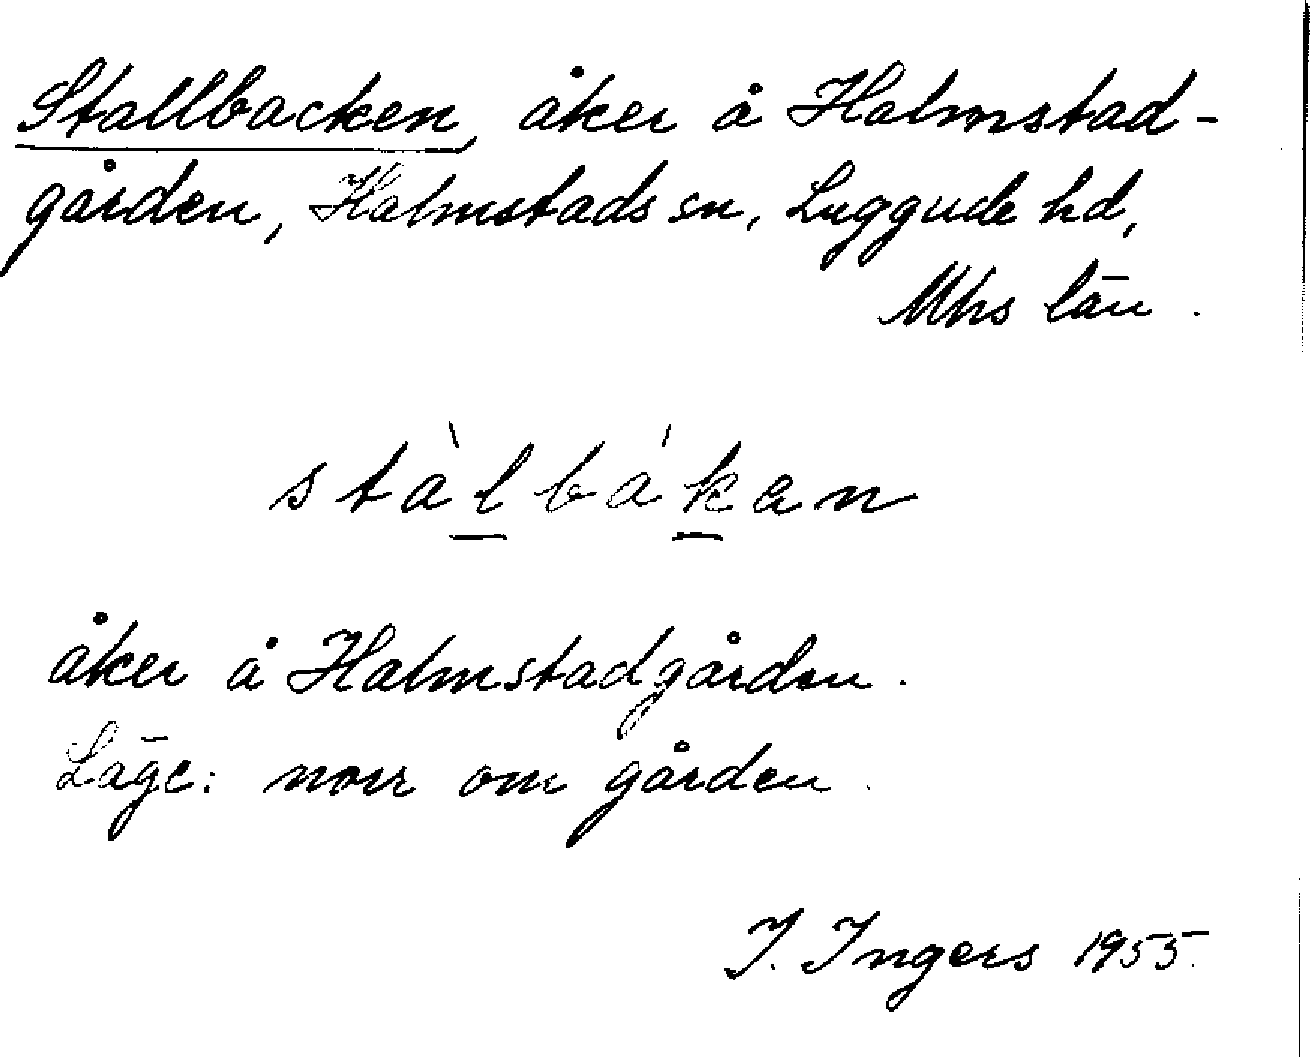 Stallbacken, åker å Halmstad-
gården, Halmstads sn, Luggude hd,
Mhs län.
stàl̲bák̲an
åker å Halmstadgården.
Läge: norr om gården.
I. Ingers 1955.